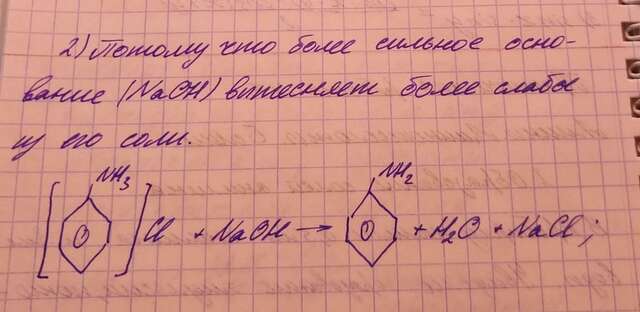 2) Потому что более сильное осно-
вание (NaOH) вытесняет более слабое
из его соли.
[NH3]Cl + NaOH → NH2 + H2O + NaCl;